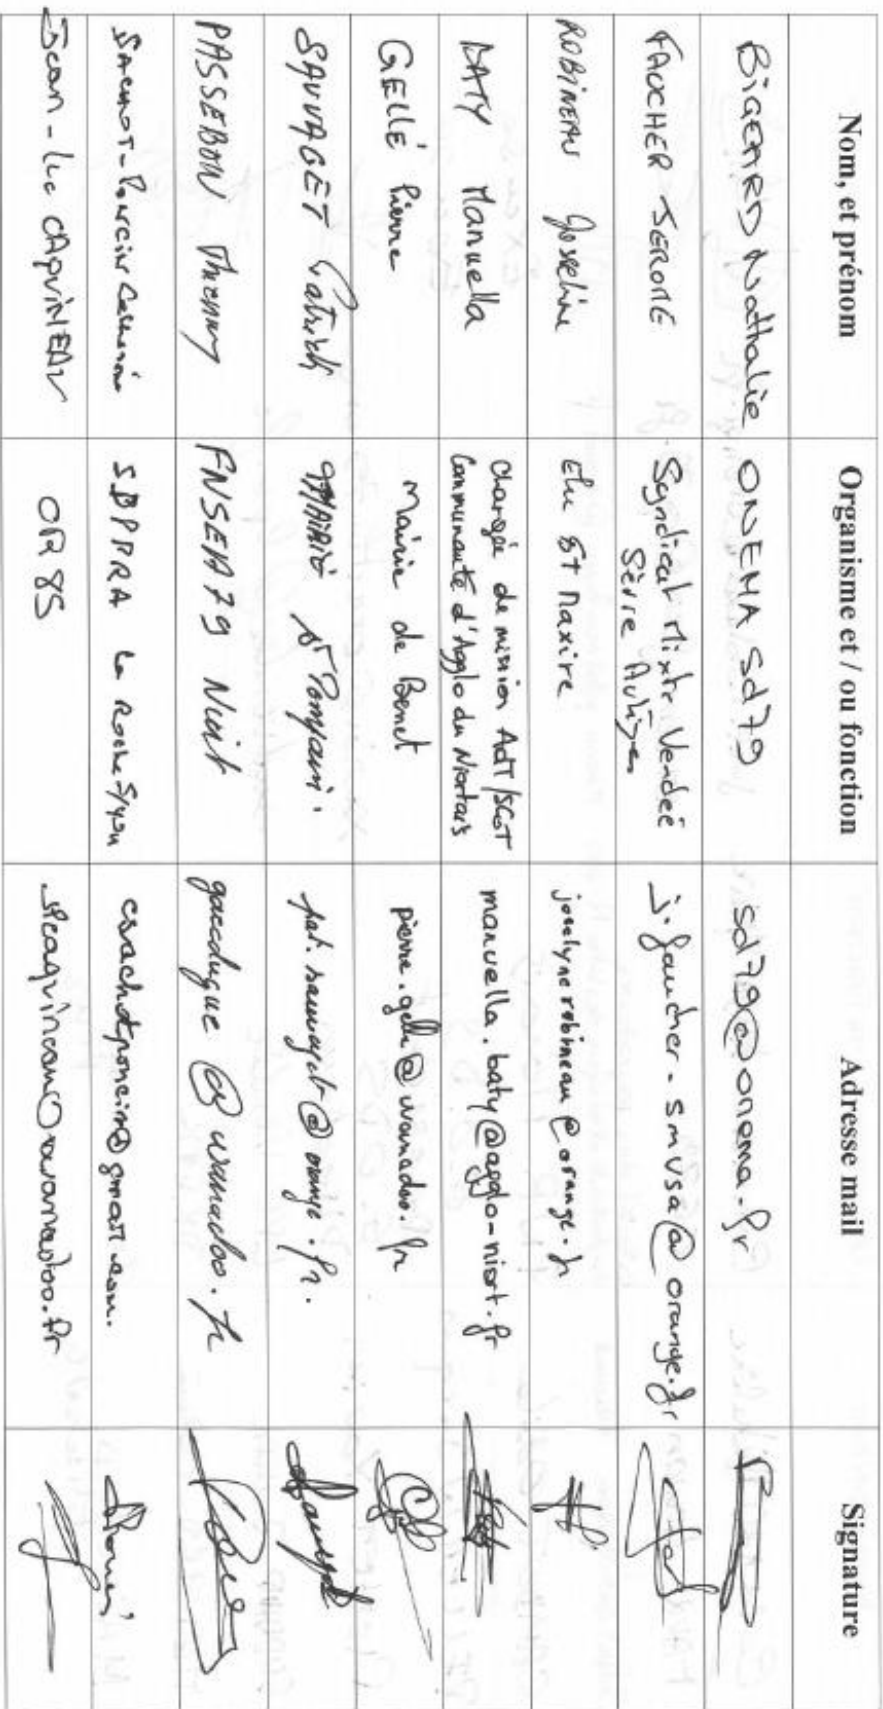 Nom, et prénom Organisme et / ou fonction Adresse mail Signature
BIGEARD Nathalie ONEMA Sd79 sd79@onema.fr
FAUCHER JEROME Syndicat Mixte Vendée j.faucher-smvsa@orange.fr
Sèvre Autizes
ROBINEAU Josseline Elu St Maxire jocelyne robineau@orange.fr
BATY Manuella chargée de mission AdT/SCOT manuella.baty@agglo-niort.fr
Communauté d'Agglo du Niortais
GELLÉ Pierre Mairie de Benet pierre.gelle@wanadoo.fr
SAUVAGET Patrick MAIRIE St Pompain. pat.sauvaget@orange.fr.
PASSEBON Thierry FNSEA79 @wanadoo.fr
SACHOT-Poncin Catherine La Roche S/yon csachotponcin@gmail.com.
Jean-Luc CAQUINEAU OR 85 jlcaquineau@wanadoo.fr